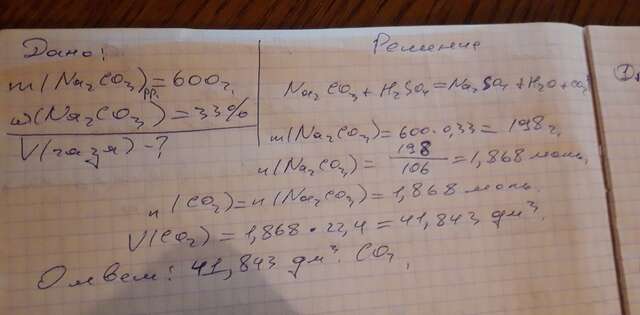 Дано:
m(Na₂CO₃)р.р. = 600г.
ω(Na₂CO₃) = 33%
V(газа) - ?
Решение
Na₂CO₃ + H₂SO₄ = Na₂SO₄ + H₂O + CO₂
m(Na₂CO₃) = 600 · 0,33 = 198 г.
n(Na₂CO₃) = 198/106 = 1,868 моль.
n(CO₂) = n(Na₂CO₃) = 1,868 моль.
V(CO₂) = 1,868 · 22,4 = 41,843 дм³.
Ответ: 41,843 дм³. CO₂.